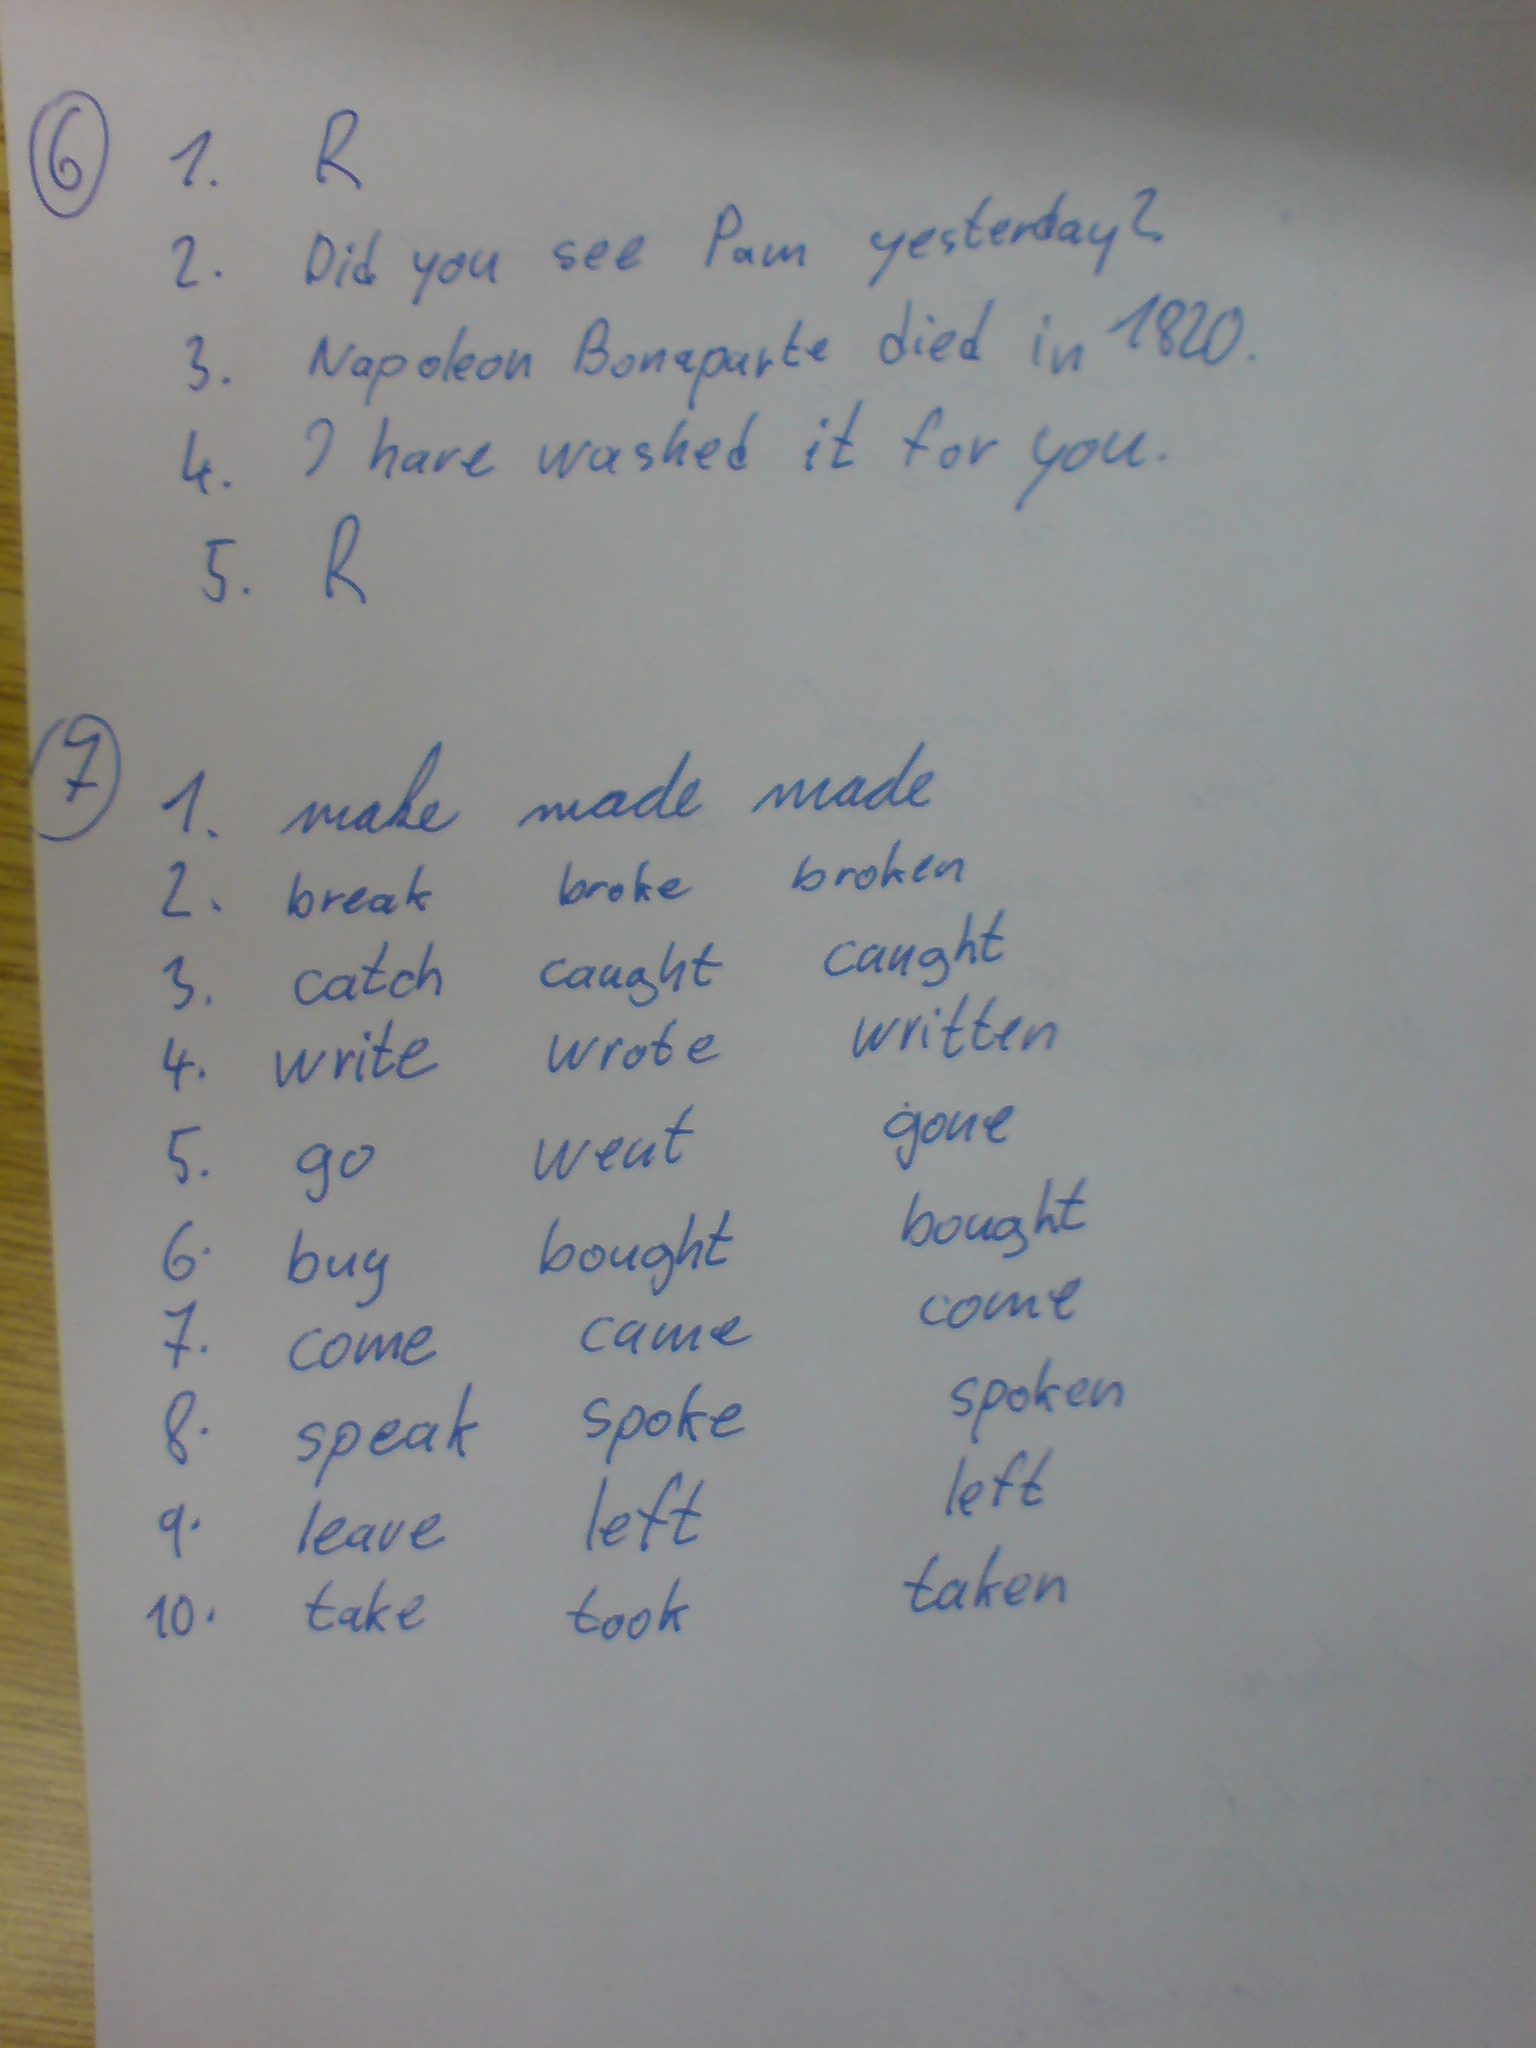 6 1. R
2. Did you see Pam yesterday?
3. Napoleon Bonaparte died in 1820.
4. I have washed it for you.
5. R
7 1. make made made
2. break broke broken
3. catch caught caught
4. write wrote written
5. go went gone
6. buy bought bought
7. come came come
8. speak spoke spoken
9. leave left left
10. take took taken